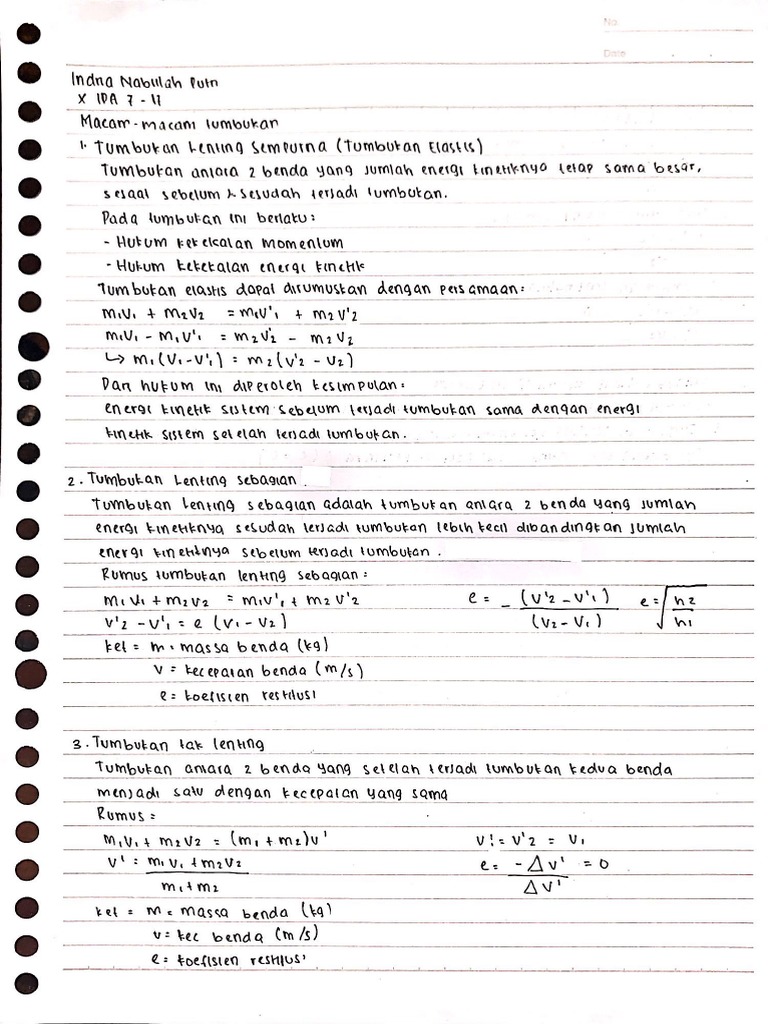 No.
Date
Indna Nabillah Putri
X IPA 7 - 11
Macam-macam tumbukan
1. Tumbukan Lenting Sempurna (Tumbukan Elastis)
Tumbukan antara 2 benda yang jumlah energi kinetiknya tetap sama besar,
sesaat sebelum & sesudah terjadi tumbukan.
Pada tumbukan ini berlaku:
- Hukum kekekalan momentum
- Hukum kekekalan energi kinetik
Tumbukan elastis dapat dirumuskan dengan persamaan:
m₁v₁ + m₂v₂ = m₁v'₁ + m₂v'₂
m₁v₁ - m₁v'₁ = m₂v'₂ - m₂v₂
↳ m₁(v₁-v'₁) = m₂(v'₂ - v₂)
Dari hukum ini diperoleh kesimpulan:
energi kinetik sistem sebelum terjadi tumbukan sama dengan energi
kinetik sistem setelah terjadi tumbukan.
2. Tumbukan Lenting sebagian
Tumbukan lenting sebagian adalah tumbukan antara 2 benda yang jumlah
energi kinetiknya sesudah terjadi tumbukan lebih kecil dibandingkan jumlah
energi kinetiknya sebelum terjadi tumbukan.
Rumus tumbukan lenting sebagian:
m₁v₁ + m₂v₂ = m₁v'₁ + m₂v'₂ e = - (v'₂ - v'₁) / (v₂ - v₁) e = √h₂/h₁
v'₂ - v'₁ = e (v₁ - v₂)
ket = m = massa benda (kg)
v = kecepatan benda (m/s)
e = koefisien restitusi
3. Tumbukan tak lenting
Tumbukan antara 2 benda yang setelah terjadi tumbukan kedua benda
menjadi satu dengan kecepatan yang sama
Rumus =
m₁v₁ + m₂v₂ = (m₁ + m₂)v' v'₁ = v'₂ = v₁
v' = m₁v₁ + m₂v₂ / m₁ + m₂ e = -Δv' / Δv' = 0
ket = m = massa benda (kg)
v = kec benda (m/s)
e = koefisien restitusi